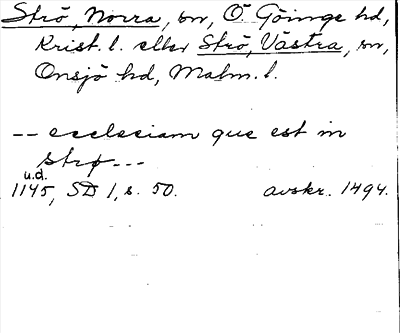 Strö, Norra, sn, Ö Göinge hd,
Krist. l. eller Strö, Västra, sn,
Onsjö hd, Malm. l.
-- ecclesiam que est in
strø---
u.d.
1145, SD 1, s. 50. avskr. 1494.